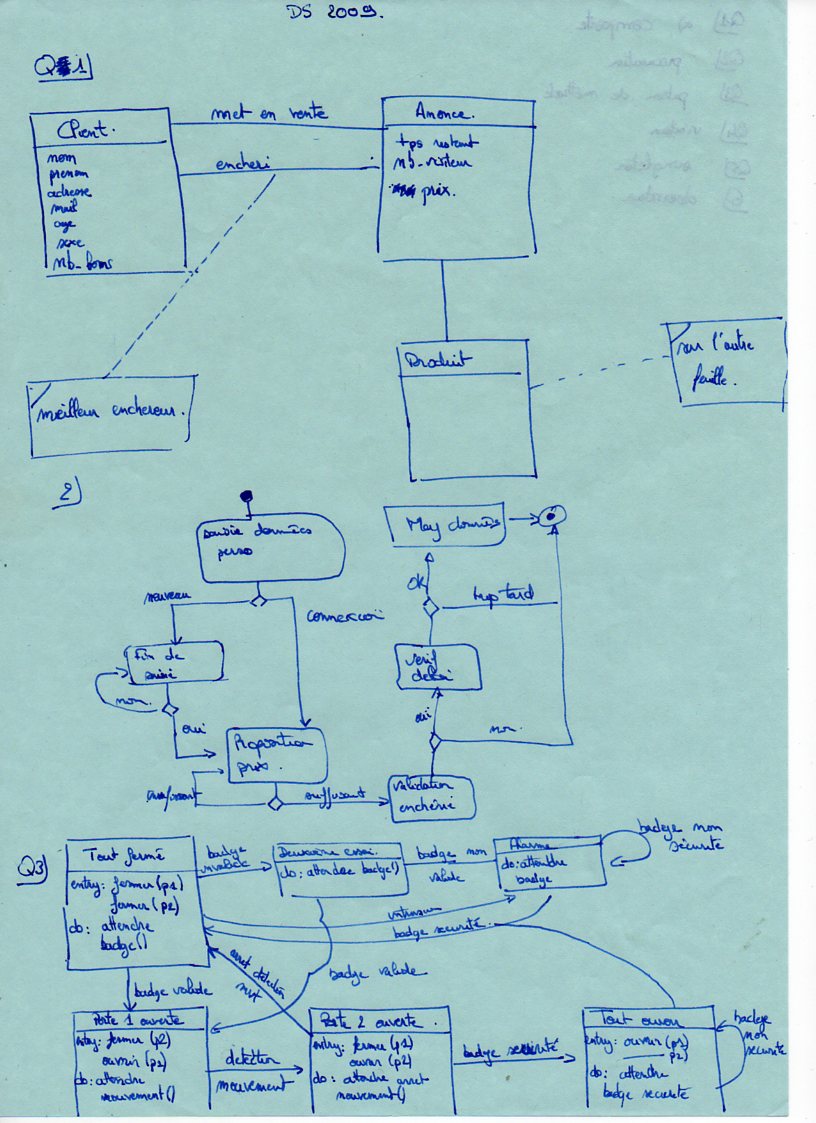 DS 2009.
Q1)
Client.
nom
prenom
adresse
mail
age
sexe
nb-bons
met en vente
encheri
Anonce.
tps restant
nb-visiteur
prix.
Produit
sur l'autre
feuille.
meilleur encherisseur.
2)
saisie données
perso
nouveau
connexion
Fin de
saisie
non
oui
Proposition
prix.
insuffisant
suffisant
validation
enchérie
oui
non
verif
delai
OK
trop tard
Maj données
Q3)
Tout fermé
entry: fermer (p1)
fermer (p2)
do: attendre
badge()
badge
invalide
Deuxieme essai
do: attendre badge()
badge non
valide
Alarme
do: attendre
badge
badge non
sécurité
intrusion
badge securité.
badge valide
arret detection
mvt
badge valide
Porte 1 ouverte
entry: fermer (p2)
ouvrir (p1)
do: attendre
mouvement()
detection
mouvement
Porte 2 ouverte.
entry: fermer (p1)
ouvrir (p2)
do: attendre arret
mouvement()
badge securité
Tout ouvert
entry: ouvrir (p1)
p2)
do: attendre
badge securité
badge
non
securité